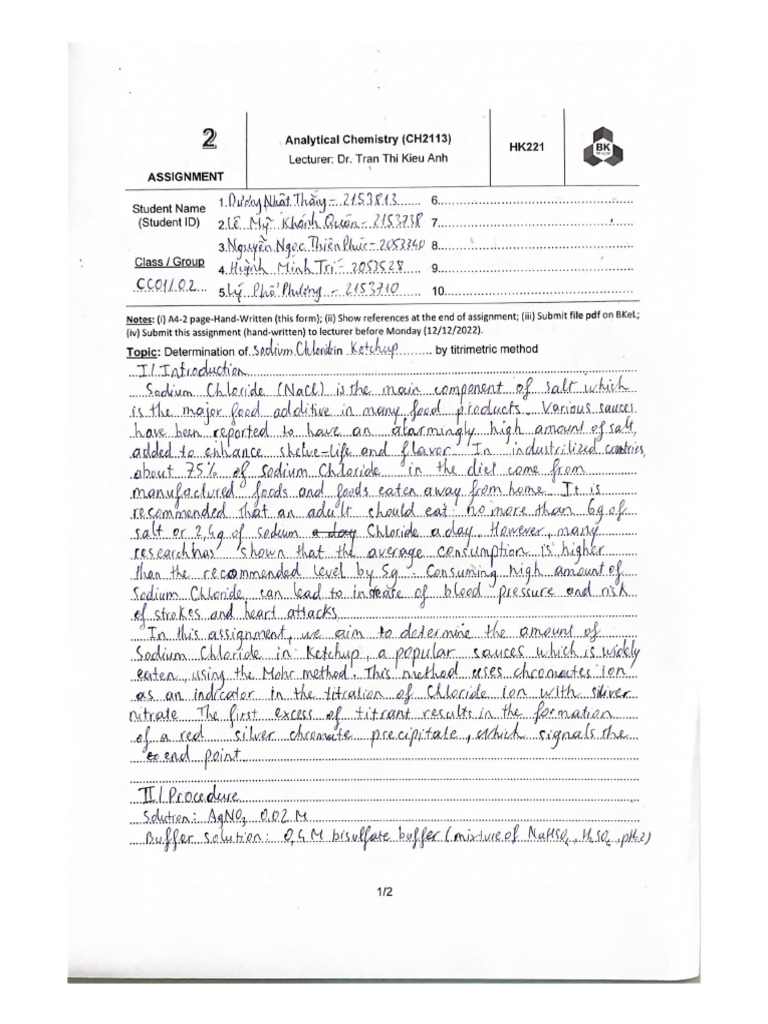 2
ASSIGNMENT
Analytical Chemistry (CH2113)
Lecturer: Dr. Tran Thi Kieu Anh
HK221
BK
Student Name
(Student ID)
Class / Group
CC01/02
1. Dương Nhật Thăng - 2153813
2. Lê Mỹ Khánh Quân - 2153738
3. Nguyễn Ngọc Thiên Phúc - 2053340
4. Huỳnh Minh Trí - 2053528
5. Lý Phổ Phương - 2153710
6.
7.
8.
9.
10.
Notes: (i) A4-2 page-Hand-Written (this form); (ii) Show references at the end of assignment; (iii) Submit file pdf on BKeL;
(iv) Submit this assignment (hand-written) to lecturer before Monday (12/12/2022).
Topic: Determination of Sodium Chloride in Ketchup by titrimetric method
I / Introduction
Sodium Chloride (NaCl) is the main component of salt which
is the major food additive in many food products. Various sauces
have been reported to have an alarmingly high amount of salt,
added to enhance shelve-life and flavor. In industrilized countries,
about 75% of Sodium Chloride in the diet come from
manufactured foods and foods eaten away from home. It is
recommended that an adult should eat no more than 6g of
salt or 2,4g of sodium a day Chloride a day. However, many
research has shown that the average consumption is higher
than the recommended level by 5g. Consuming high amount of
Sodium Chloride can lead to increase of blood pressure and risk
of strokes and heart attacks
In this assignment, we aim to determine the amount of
Sodium Chloride in Ketchup, a popular sauces which is widely
eaten, using the Mohr method. This method uses chromates ion
as an indicator in the titration of Chloride ion with silver
nitrate The first excess of titrant results in the formation
of a red silver chromate precipitate, which signals the
end point
II / Procedure
Solution: AgNO3 0.02 M
Buffer solution: 0,4 M bisulfate buffer (mixture of NaHSO4, H2SO4, pH=2)
1/2